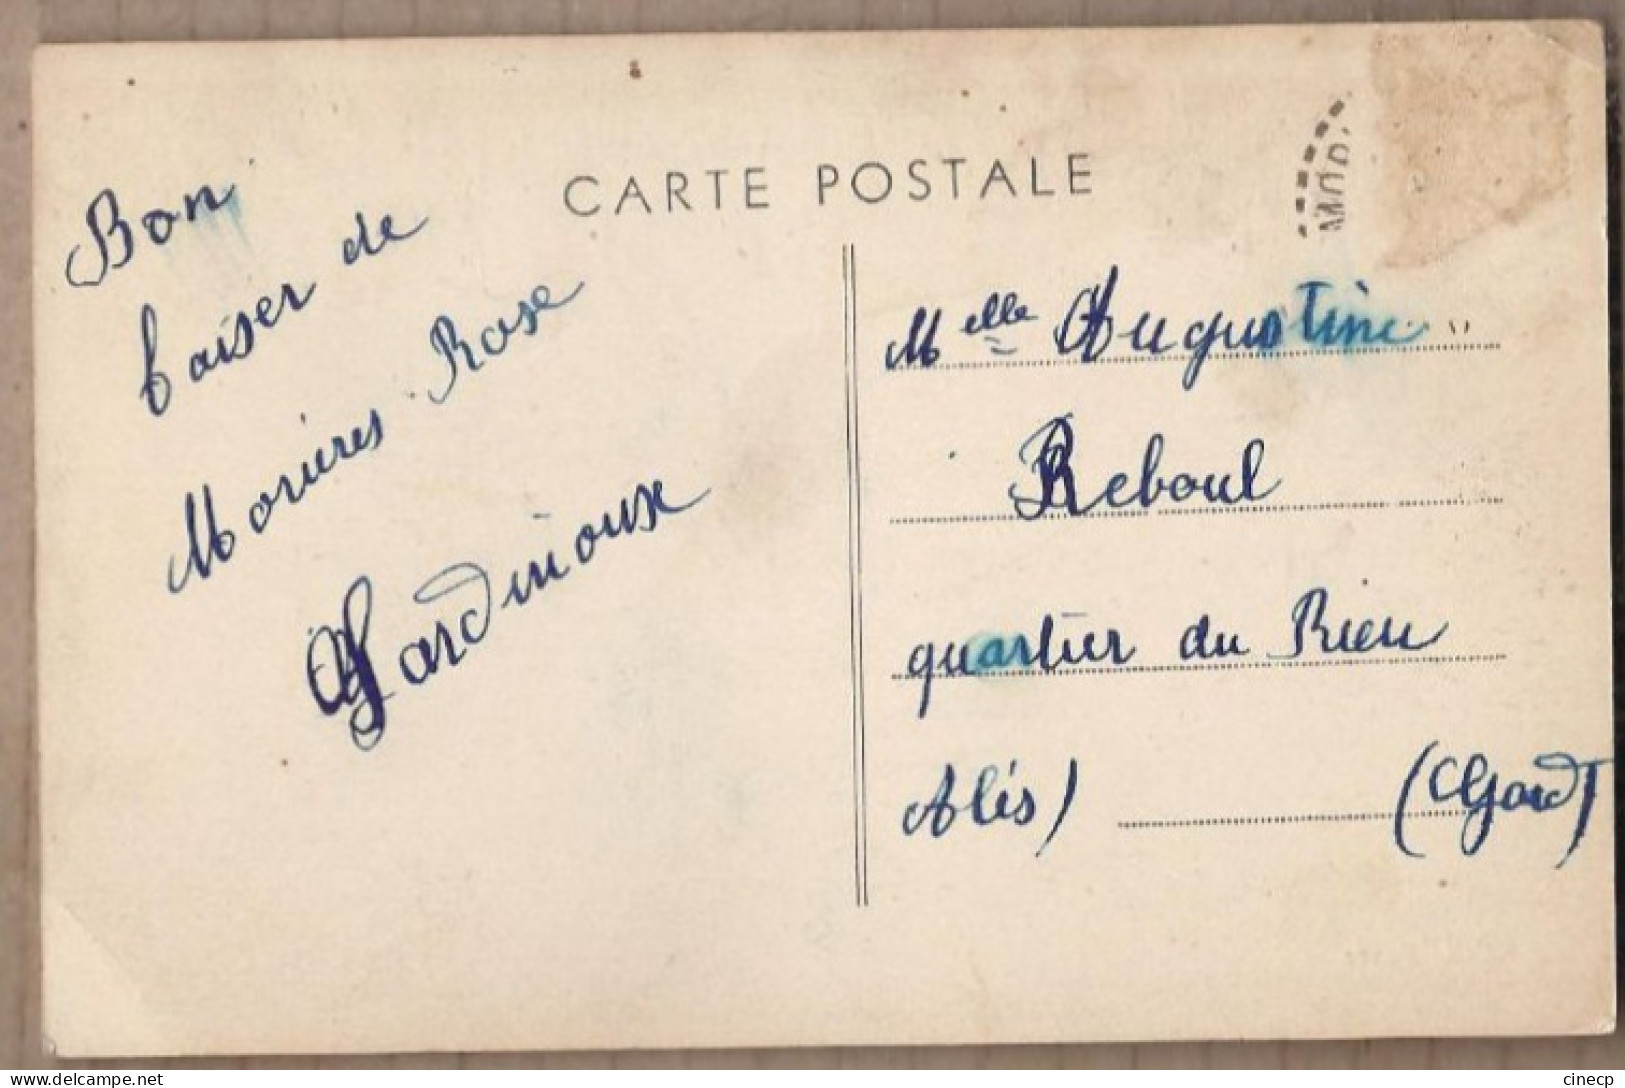 CARTE POSTALE
Bon
baiser de
Morieres Rose
Jardinoux
Melle Augustine
Reboul
quartier du Rieu
Alés) (Gard)
delcampe.net
cinecp